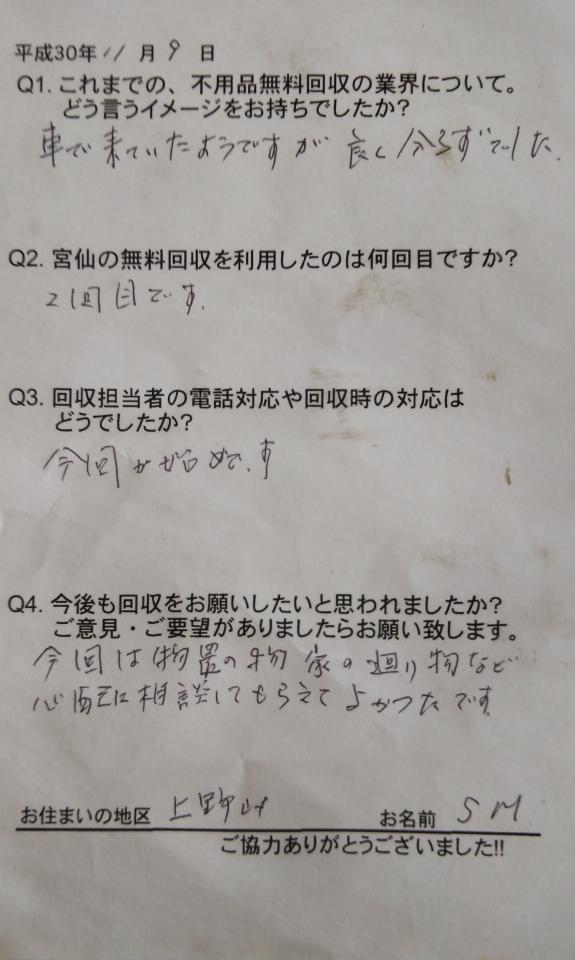 平成30年 11 月 9 日
Q1. これまでの、不用品無料回収の業界について。
どう言うイメージをお持ちでしたか?
車で来ていたようですが 良く分らずでした.
Q2. 宮仙の無料回収を利用したのは何回目ですか?
2回目です.
Q3. 回収担当者の電話対応や回収時の対応は
どうでしたか?
今回が です
Q4. 今後も回収をお願いしたいと思われましたか?
ご意見・ご要望がありましたらお願い致します。
今回は物置の物 家の廻り物など
心配に相談してもらえてよかったです
お住まいの地区 上野山
お名前 S M
ご協力ありがとうございました!!